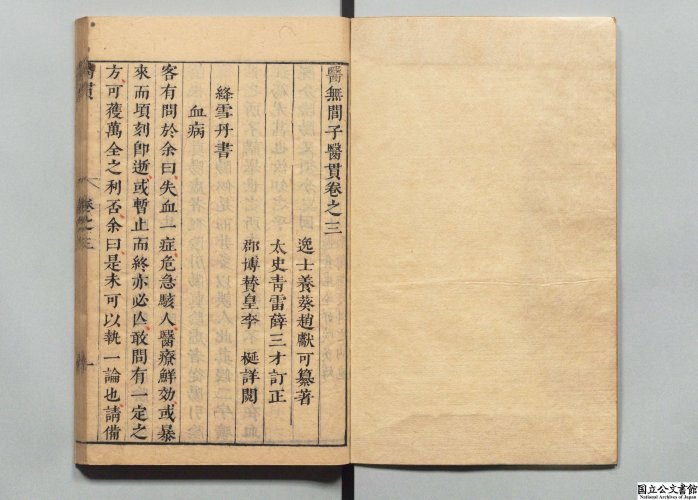 醫無閭子醫貫卷之三
逸士養葵趙獻可纂著
太史靑雷薛三才訂正
郡博贊皇李 梃詳閱
絳雪丹書
血病
客有問於余曰失血一症危急駭人醫療鮮効或暴
來而頃刻卽逝或暫止而終亦必亾敢問有一定之
方可獲萬全之利否余曰是未可以執一論也請備
醫貫 卷之三 一
国立公文書館
National Archives of Japan